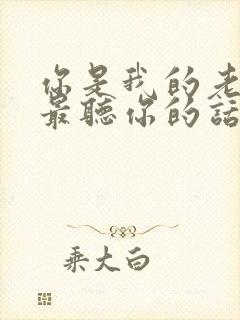 你是我的老
最聽你的話
乘大白